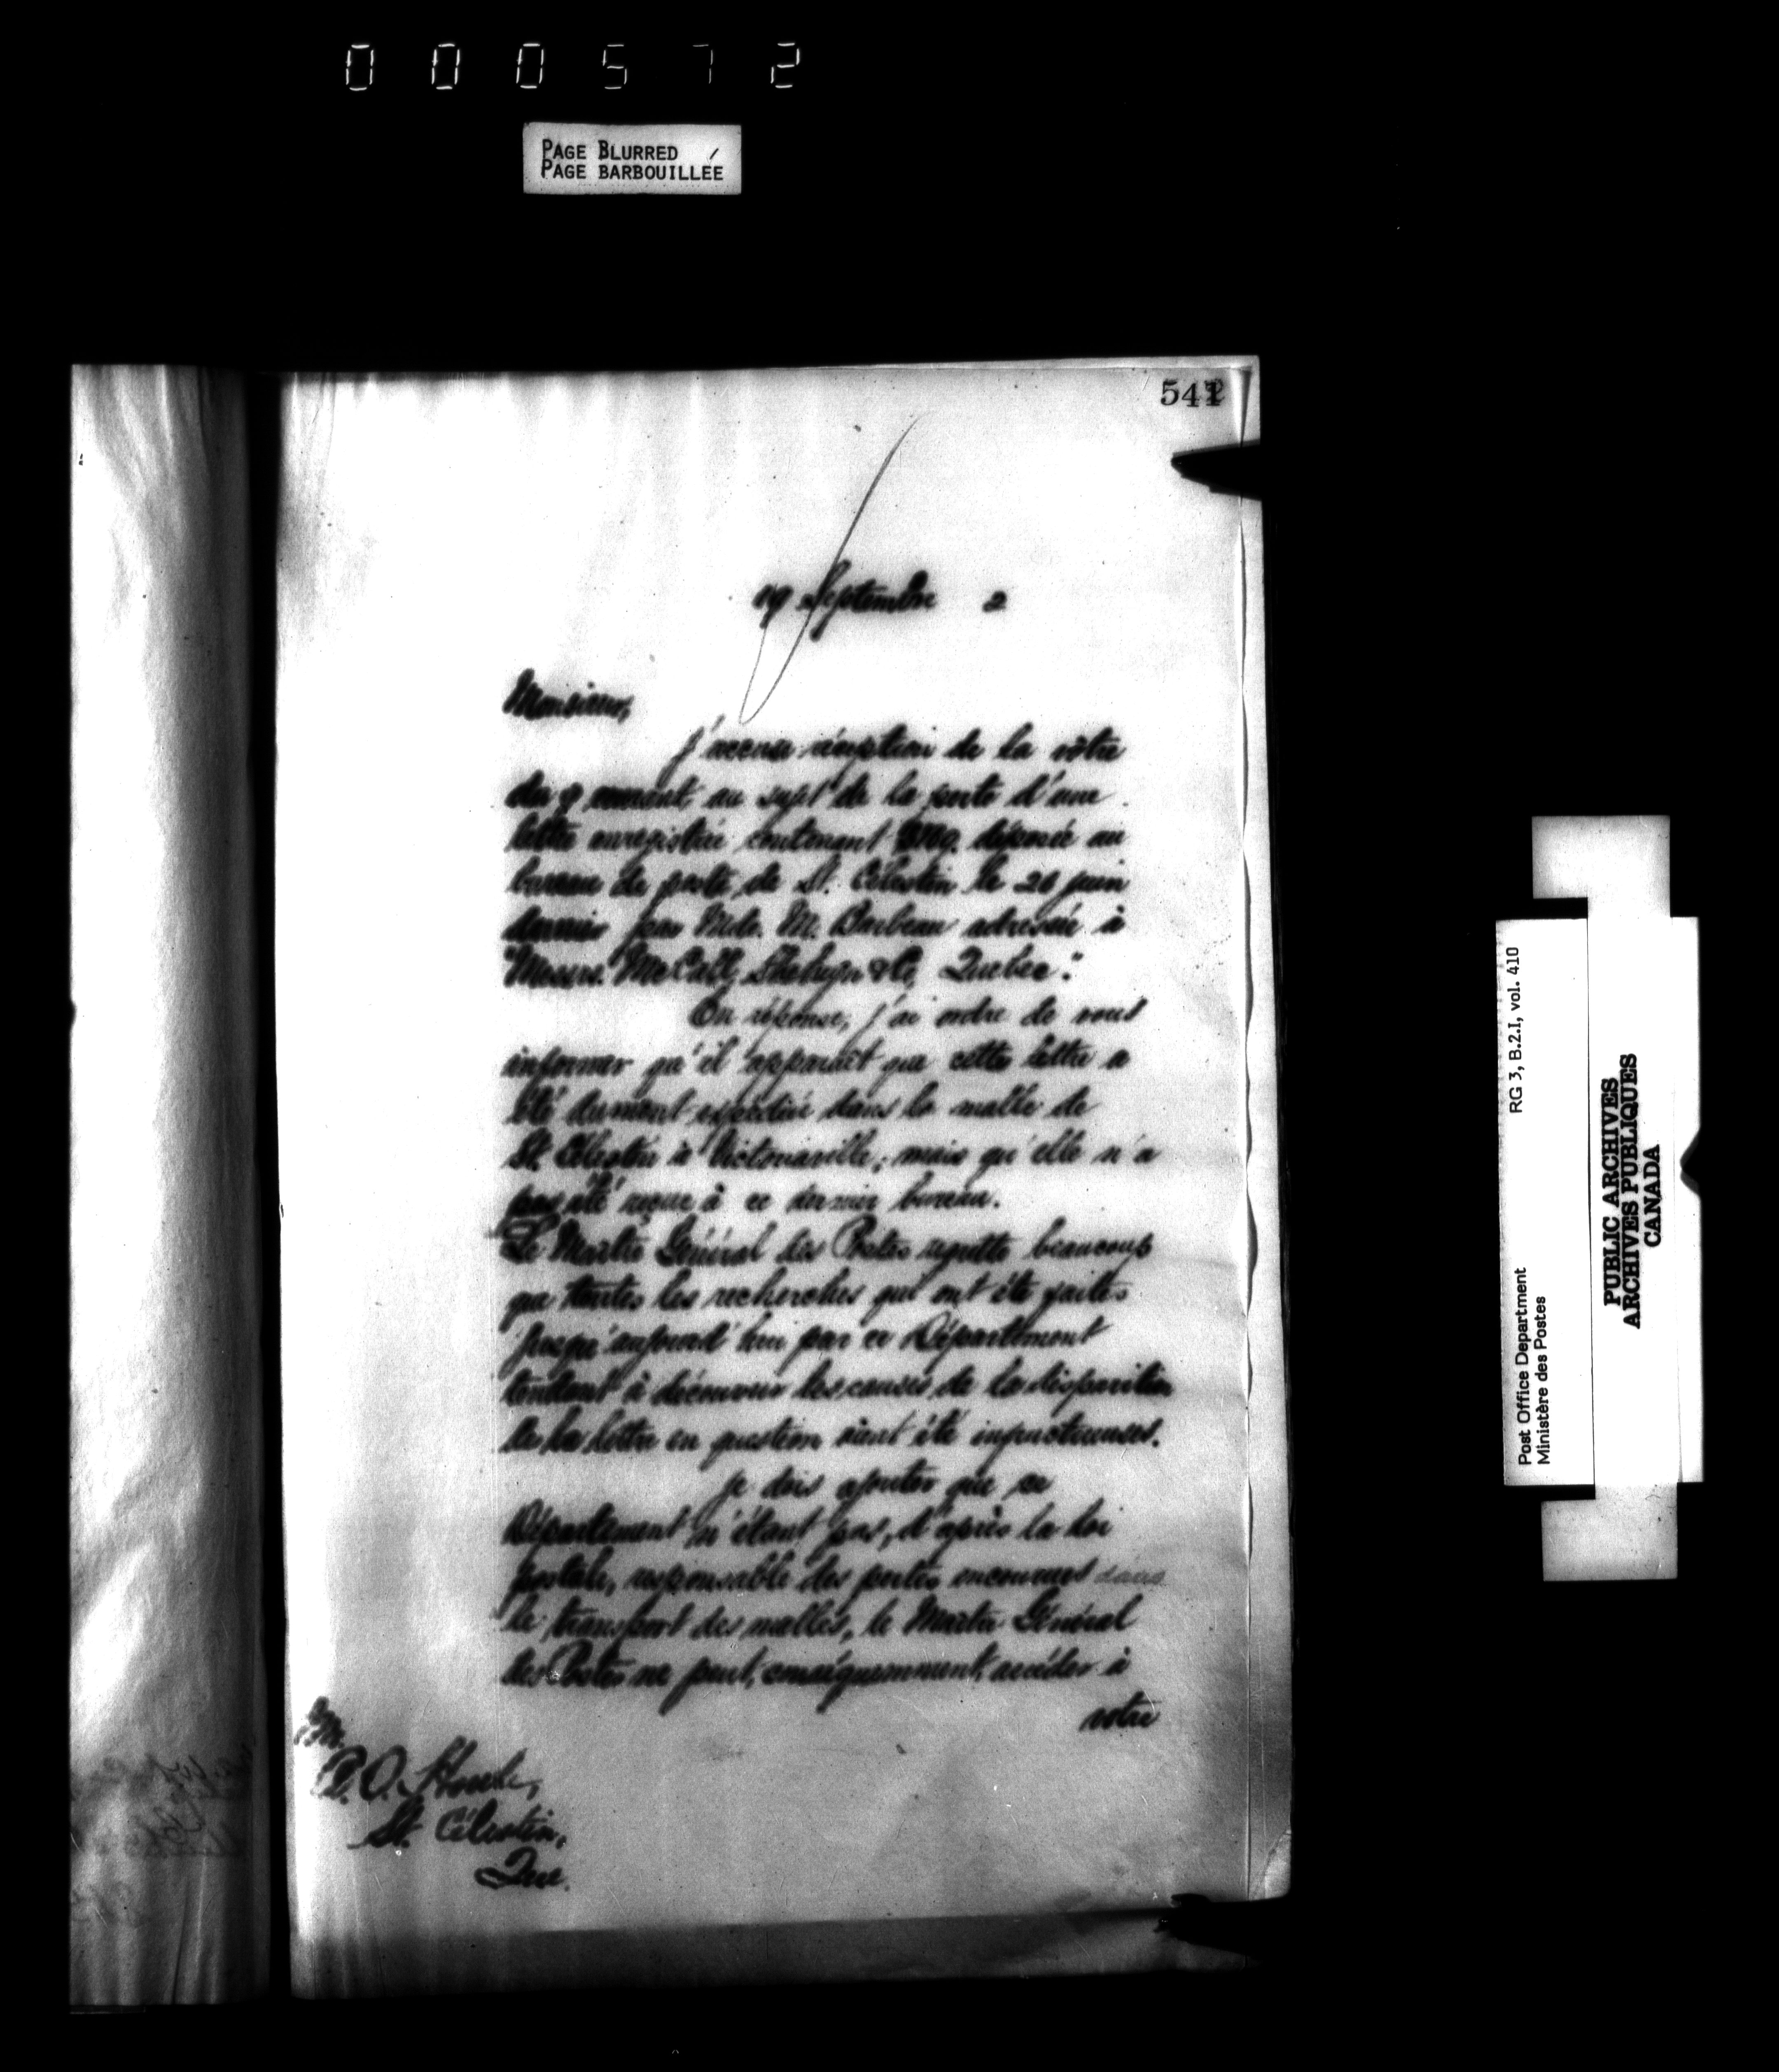 000572
PAGE BLURRED
PAGE BARBOUILLÉE
541
19 Septembre 2
Monsieur,
J'accuse réception de la vôtre
du 9 courant, au sujet de la perte d'une
lettre enregistrée contenant déposée au
bureau de poste de St. Célestin le 26 juin
dernier par Mde. M. Barbeau adressée à
"Messrs. McCall, Shehyn & Co, Quebec."
En réponse, j'ai ordre de vous
informer qu'il apparaît que cette lettre a
été dument expédiée dans la malle de
St. Célestin à Victoriaville; mais qu'elle n'a
pas été reçue à ce dernier bureau.
Le Maître Général des Postes regrette beaucoup
que toutes les recherches qui ont été faites
jusqu'aujourd'hui par ce Département
tendant à découvrir les causes de la disparition
de la lettre en question aient été infructueuses.
Je dois ajouter que ce
Département n'étant pas, d'après la loi
postale, responsable des pertes encourues dans
le transport des malles, le Maître Général
des Postes ne peut, conséquemment, accéder à
votre
M.
P. O. Houle,
St. Célestin,
Que.
Post Office Department
Ministère des Postes
RG 3, B.2.I, vol. 410
PUBLIC ARCHIVES
ARCHIVES PUBLIQUES
CANADA